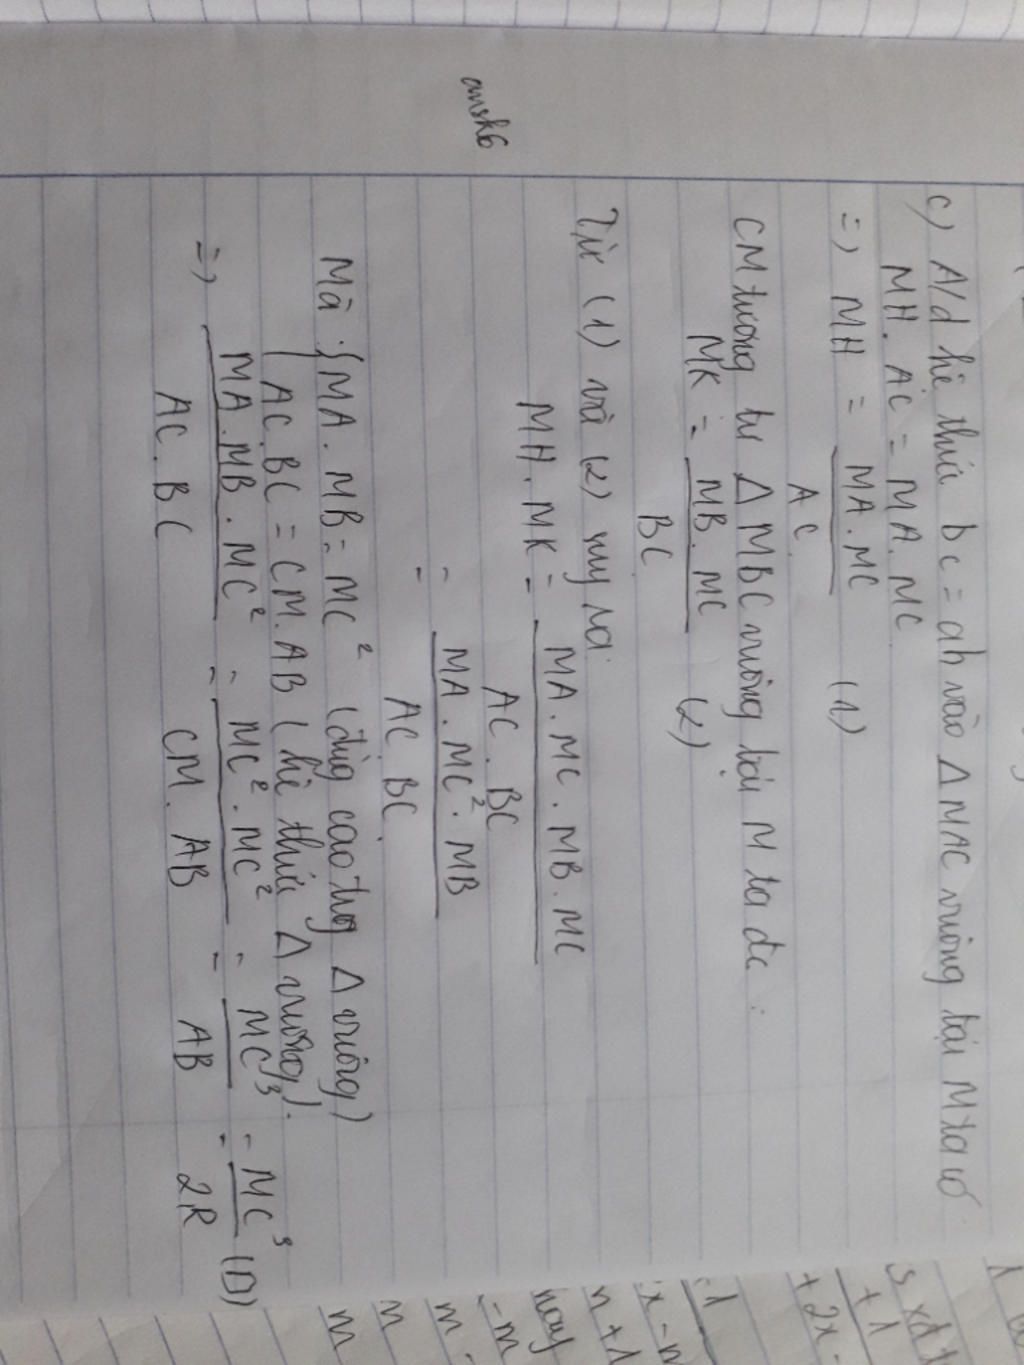 c) A/d hệ thức bc = ah vào Δ MAC vuông tại M ta có
MH. AC = MA. MC
=> MH = MA.MC / AC (1)
CM tương tự Δ MBC vuông tại M ta đc :
MK = MB. MC / BC (2)
Từ (1) và (2) suy ra
MH. MK = MA. MC. MB. MC / AC. BC
= MA. MC². MB / AC. BC.
Mà { MA. MB = MC² (đg cao trg Δ vuông)
AC.BC = CM.AB (hệ thức Δ vuông).
=> MA.MB.MC² / AC. BC = MC². MC² / CM. AB = MC³ / AB = MC³ / 2R (D)
amsk6
1
s xđ
+ 1
+ 2x -
- 1
x - m
n + 1
hay
- m
m -
n
m